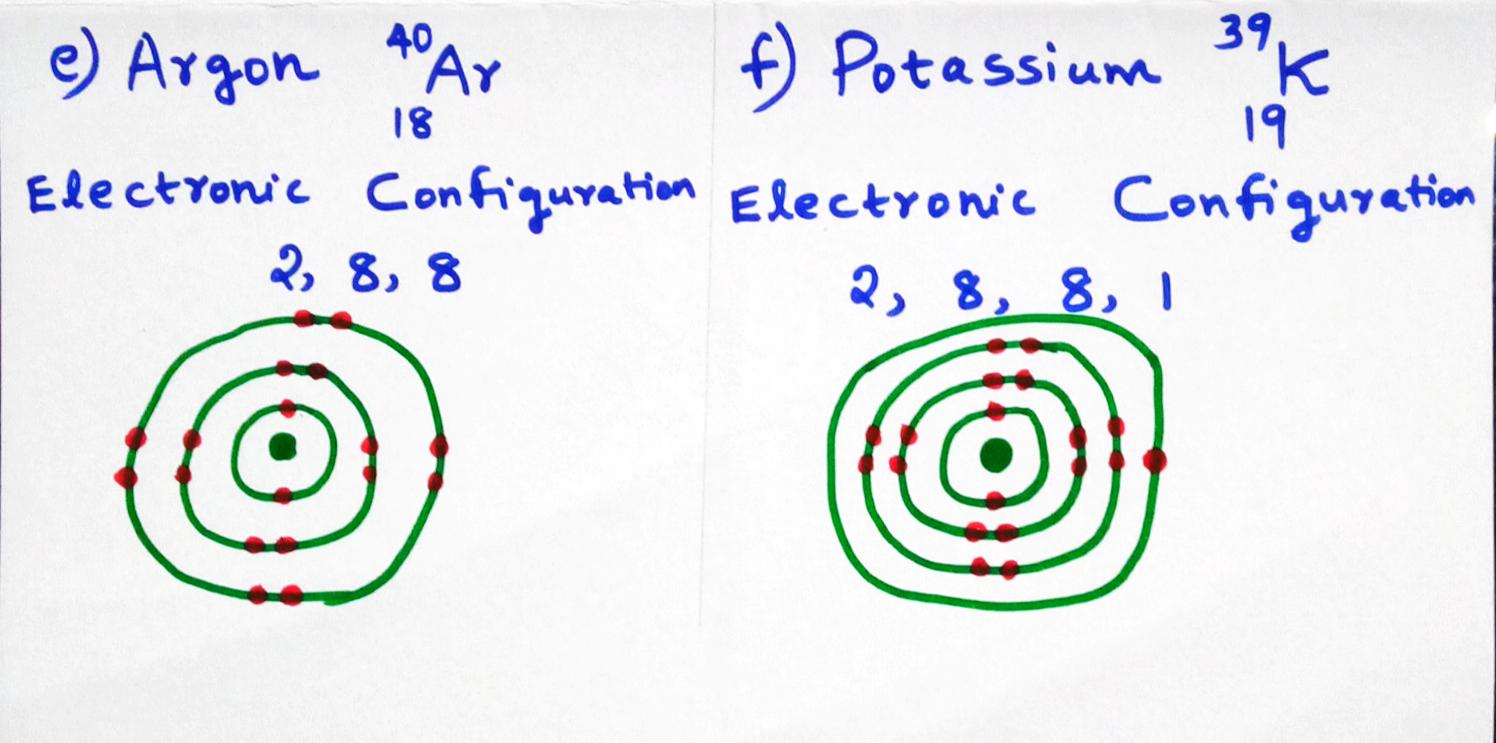 e) Argon ⁴⁰₁₈Ar
Electronic Configuration
2, 8, 8
f) Potassium ³⁹₁₉K
Electronic Configuration
2, 8, 8, 1